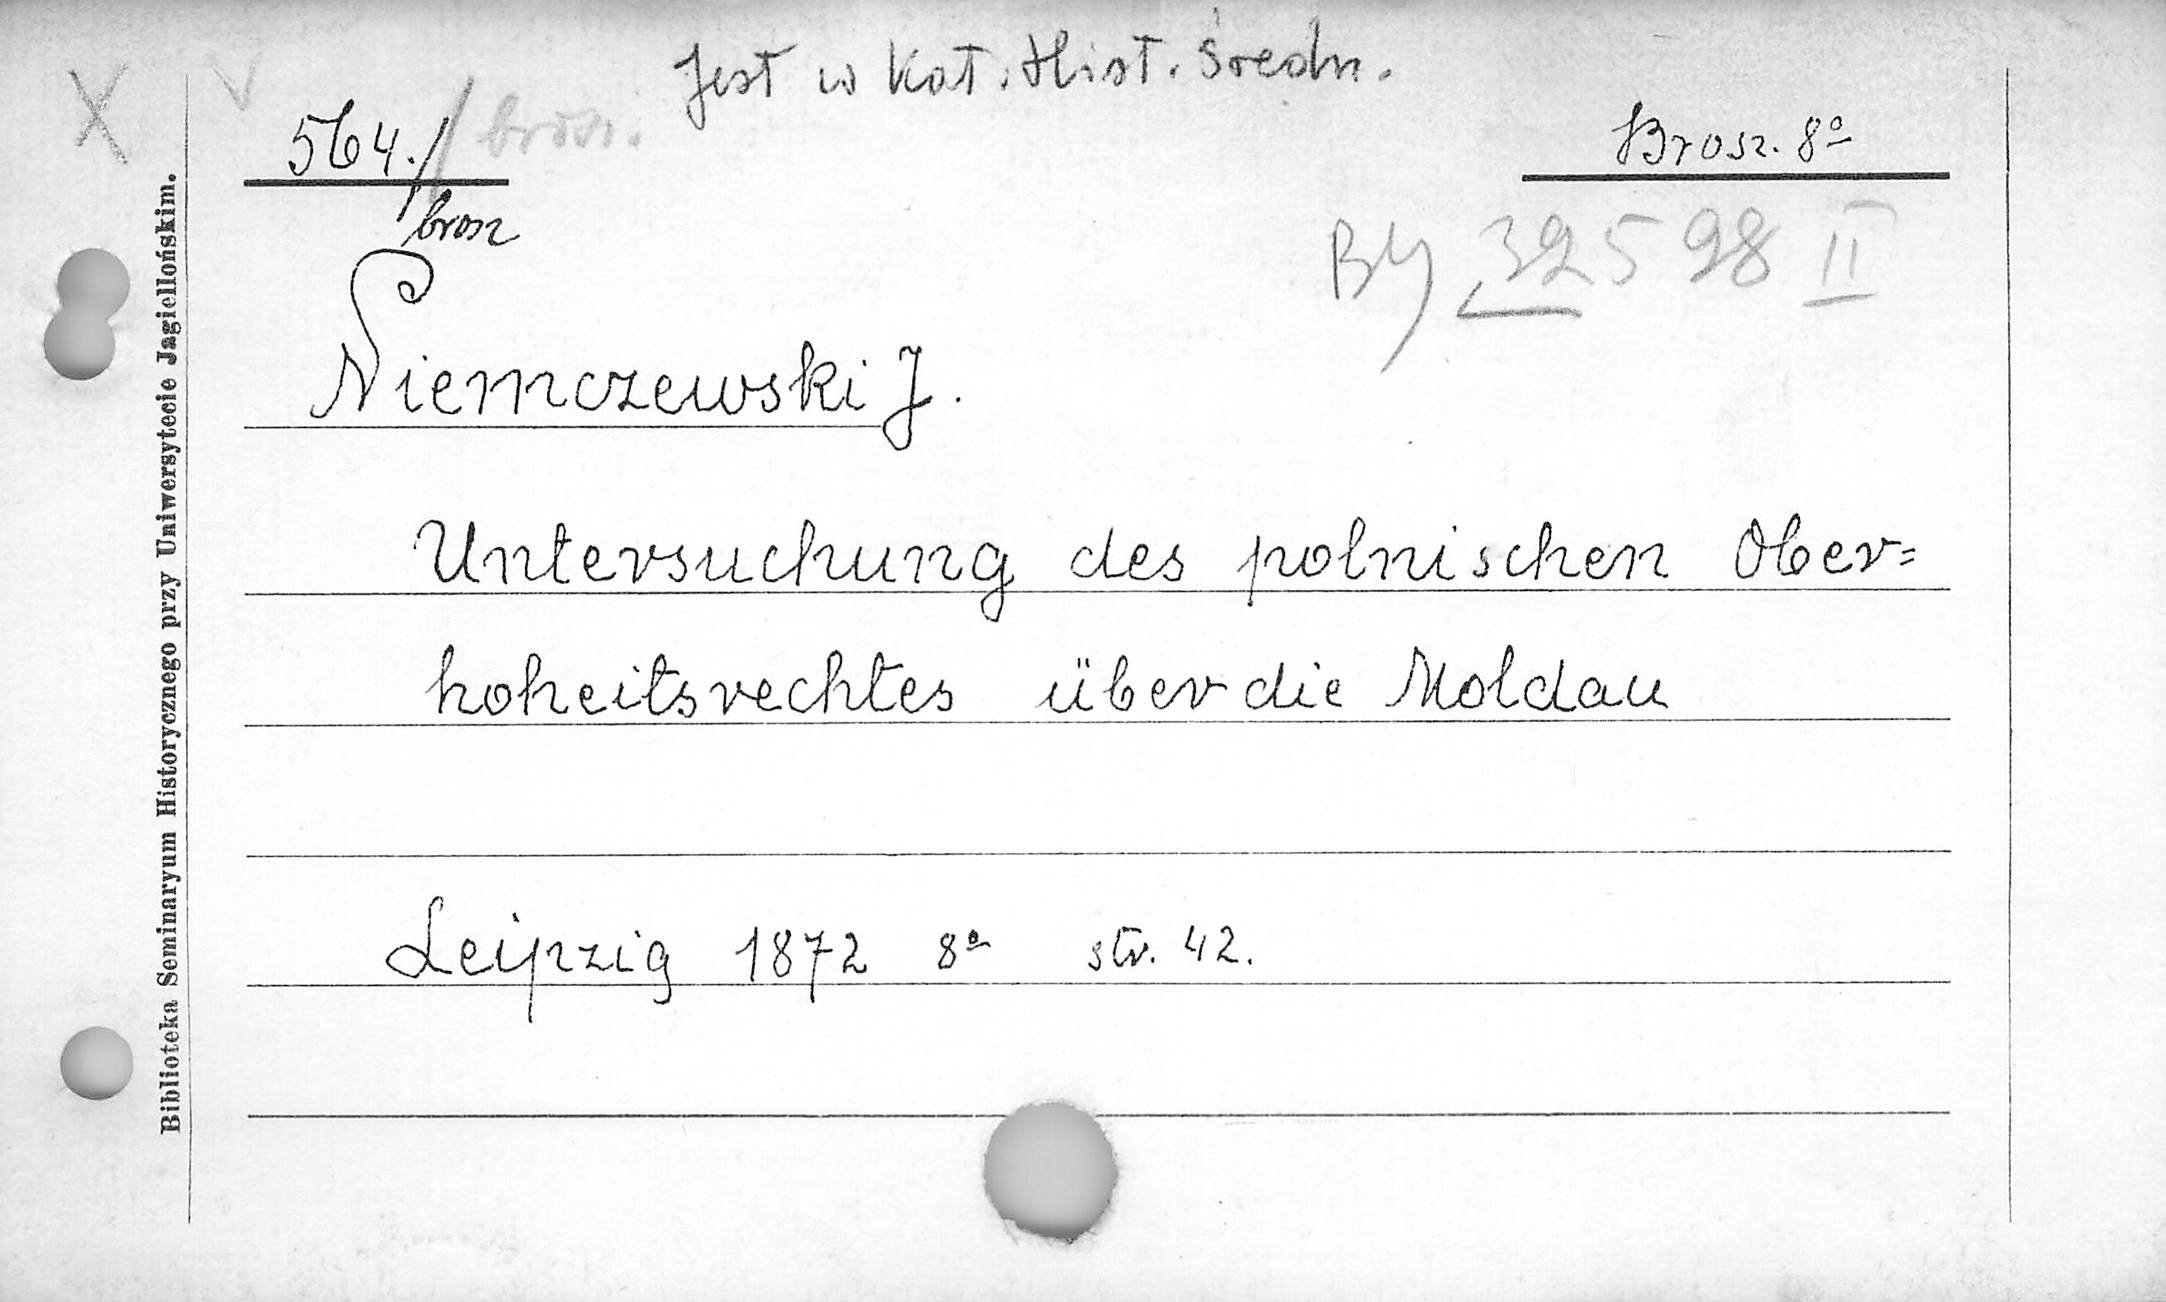 Jest w Kat. Hist. Średn.
X
564./brosz.
brosz
Brosz. 8º
BJ 32598 II
Niemczewski J.
Untersuchung des polnischen Ober=
hoheitsrechtes über die Moldau
Leipzig 1872 8º str. 42.
Biblioteka Seminaryum Historycznego przy Uniwersytecie Jagiellońskim.